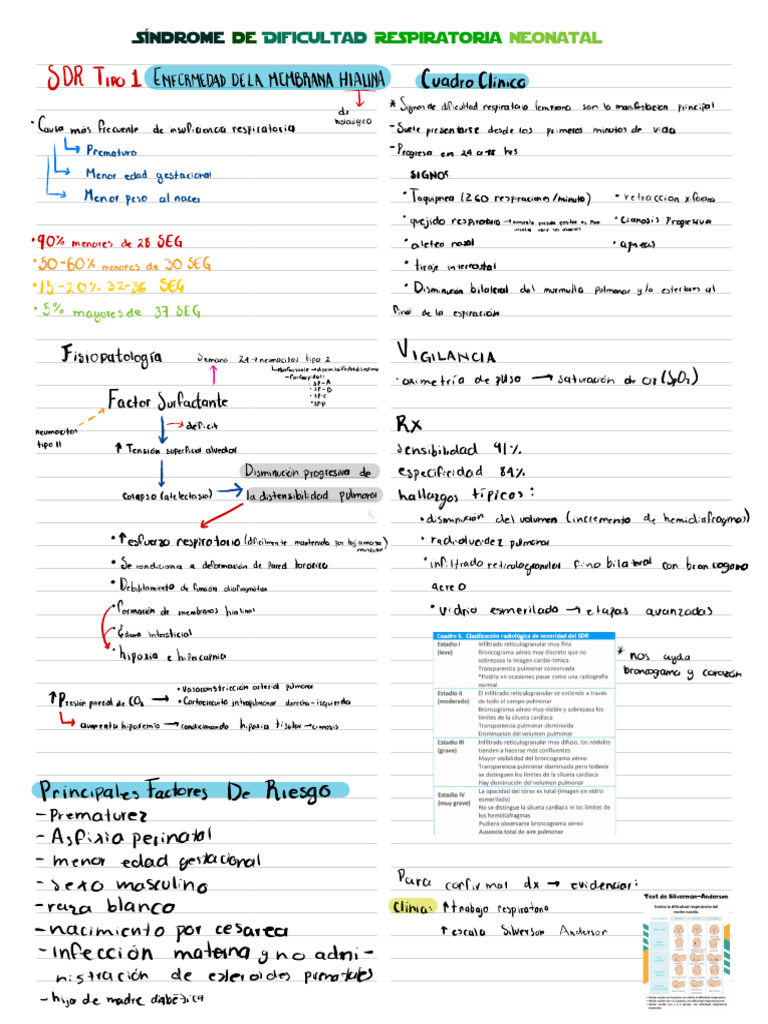 SÍNDROME DE DIFICULTAD RESPIRATORIA NEONATAL
SDR TIPO 1 ENFERMEDAD DE LA MEMBRANA HIALINA
dx histológico
• Causa más frecuente de insuficiencia respiratoria
Prematuro
Menor edad gestacional
Menor peso al nacer
• 90% menores de 28 SEG
• 50-60% menores de 30 SEG
• 15-20% 32-36 SEG
• 5% mayores de 37 SEG
Fisiopatología
Semana 24 → neumocitos tipo 2
SP-A
SP-B
SP-C
SPD
Factor Surfactante
→ déficit
neumocitos tipo II
↑ Tensión superficial alveolar
colapso (atelectasia) →
Disminución progresiva de
la distensibilidad pulmonar
• ↑ esfuerzo respiratorio (dificilmente mantenido por baja masa muscular)
• Se condiciona a deformación de Pared toracica
• Debilitamiento de función diafragmática
• Formación de membranas hialinas
• Edema intersticial
• hipoxia e hipercapnia
↑ Presión parcial de CO2 → • Vasoconstricción arterial pulmonar
• Cortocircuito intrapulmonar derecha-izquierda
aumenta hipoxemia → condicionando hipoxia tisular → cianosis
Principales Factores De Riesgo
- Prematurez
- Asfixia perinatal
- menor edad gestacional
- sexo masculino
- raza blanco
- nacimiento por cesarea
- infección materna y no admi-
nistración de esteroides prenatales
- hijo de madre diabética
Cuadro Clínico
* Signos de dificultad respiratoria temprana son la manifestación principal
- Suele presentarse desde los primeros minutos de vida
- Progresa en 24 a 48 hrs
SIGNOS
• Taquipnea (≥60 respiraciones/minuto)
• retracción xifoidea
• quejido respiratorio →
• Cianosis Progresiva
• aleteo nasal
• apneas
• tiraje intercostal
• Disminución bilateral del murmullo pulmonar y/o estertores al
final de la espiración
VIGILANCIA
• oximetría de pulso → saturación de O2 (SpO2)
Rx
sensibilidad 91%
especificidad 84%
hallazgos típicos:
• disminución del volumen (incremento de hemidiafragmas)
• radiolucidez pulmonar
• infiltrado reticulogranular fino bilateral con broncograma
aereo
• vidrio esmerilado → etapas avanzadas
Cuadro 5. Clasificación radiológica de severidad del SDR
Estadio I (leve)
Infiltrado reticulogranular muy fino
Broncograma aéreo muy discreto que no
sobrepasa la imagen cardio-tímica
Transparencia pulmonar conservada
*Podría en ocasiones pasar como una radiografía
normal
Estadio II (moderado)
El infiltrado reticulogranular se extiende a través
de todo el campo pulmonar
Broncograma aéreo muy visible y sobrepasa los
límites de la silueta cardíaca
Transparencia pulmonar disminuida
Disminución del volumen pulmonar
Estadio III (grave)
Infiltrado reticulogranular muy difuso, los nódulos
tienden a hacerse más confluentes
Mayor visibilidad del broncograma aéreo
Transparencia pulmonar disminuida pero todavía
se distinguen los límites de la silueta cardíaca
Hay disminución del volumen pulmonar
Estadio IV (muy grave)
La opacidad del tórax es total (imagen en vidrio
esmerilado)
No se distingue la silueta cardíaca ni los límites de
los hemidiafragmas
Pudiera observarse broncograma aéreo
Ausencia total de aire pulmonar
* nos ayuda
broncograma y corazón
Para confirmar dx → evidenciar:
Clínica: ↑ trabajo respiratorio
↑ escala Silverson Anderson
Test de Silverman-Anderson
Evalúa la dificultad respiratoria del
recién nacido.